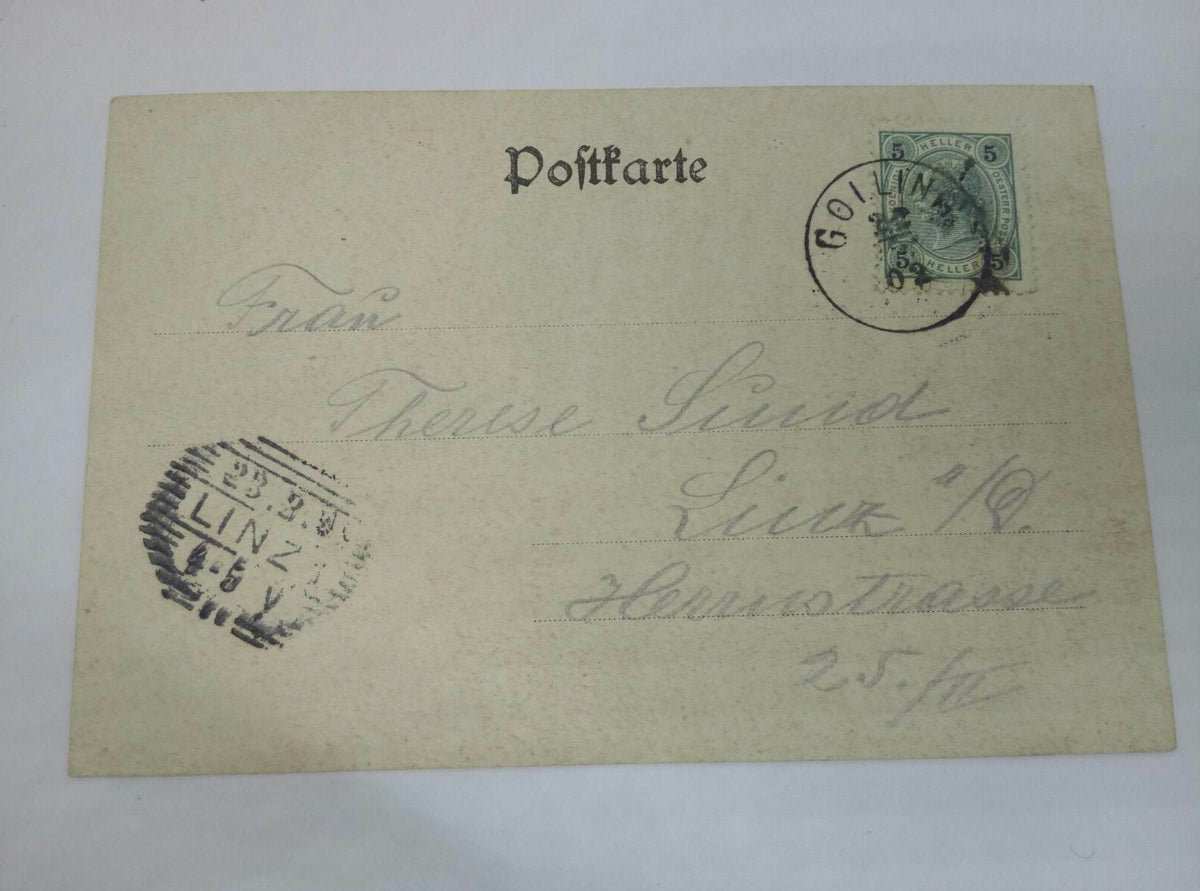 Postkarte
5 HELLER 5
OESTERR. POST
5 HELLER 5
GOLLING
02
Frau
Therese
Linz a/D.
Herrnstrasse
25./II
23.3.
LINZ
4-5